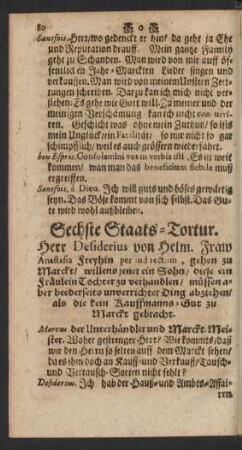 80 ❦ o ❦
Sansfois. Herr/ wo gedenckt er hin? da geht ja Ehr
und Reputation drauff. Mein gantze Family
geht zu Schanden. Man wird von mir auff öf-
fentlichen Jahr-Marckten Lieder singen und
verkauffen. Man wird von meinem Unstern Zeit-
tungen schreiben. Darzu kan ich mich nicht ver-
stehen: Es gehe wie Gott will. Zu meiner und der
meinigen Verschimpffung kan ich nicht
Es geschicht das ohne mein Zuthun/ so ists
mein Unglück so mir nicht so gar
schimpfflich/ weil es auch grössern wiederfahrt.
bon Espres. Consolamini vos in verbis isti. Es ist weit
kommen/ wan man das beneficium flebile muß
ergreiffen.
Sansfois. à Dieu. Ich will guts und böses gewärtig
seyn. Das Böse kommt von sich selbst. Das Gu-
te wird wohl außbleiben.
Sechste Staats-Tortur.
Herr Desiderius von Helm. Fraw
Anastasia Freyhin per indirectum, gehen zu
Marckt/ willens jener ein Sohn/ diese ein
Fräulein Tochter zu verhandlen/ müssen a-
ber beederseits unverrichter Ding abziehen/
als die kein Kauffmanns-Gut zu
Marckt gebracht.
der Unterhändler und Marckt-Mei-
ster. Woher gestrenger Herr/ Wie kommts/ daß
wir den Herrn so selten auff dem Marckt sehen/
da es ihm doch an Kauff- und Verkauff/ Tausch-
und Vertausch-Sorten nicht fehlt?
Desiderius. Ich hab der Hauß- und Ambts-Affai-
ren